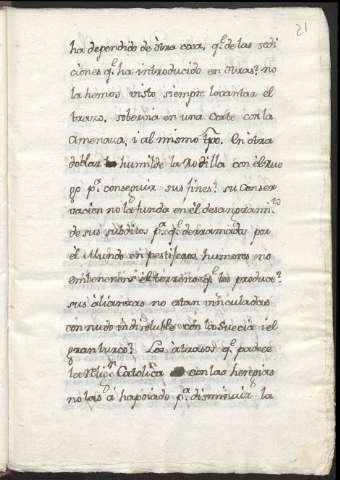 21
ha dependido de otra cosa, q.e de las sedi
ciones q.e ha introducido en otras? no
la hemos visto siempre levantar el
brazo, sobervia en una Corte con la
Amenaza, i al mismo tpo. En otra
doblar humilde la Rodilla con el Rue
go p.a conseguir sus fines? su Conser
vacion no la funda en el desangram.to
de sus subditos p.a q.e derramada por
el Mundo en pestiferos humores no
embenenen el terreno q.e los produce?
sus alianzas no estan vinculadas
con nudo indisoluble con la Suecia i el
gran turco? Los atrasos q.e padece
la Relig.n Catolica con las heregias
no las á hapoiado p.a disminuir la